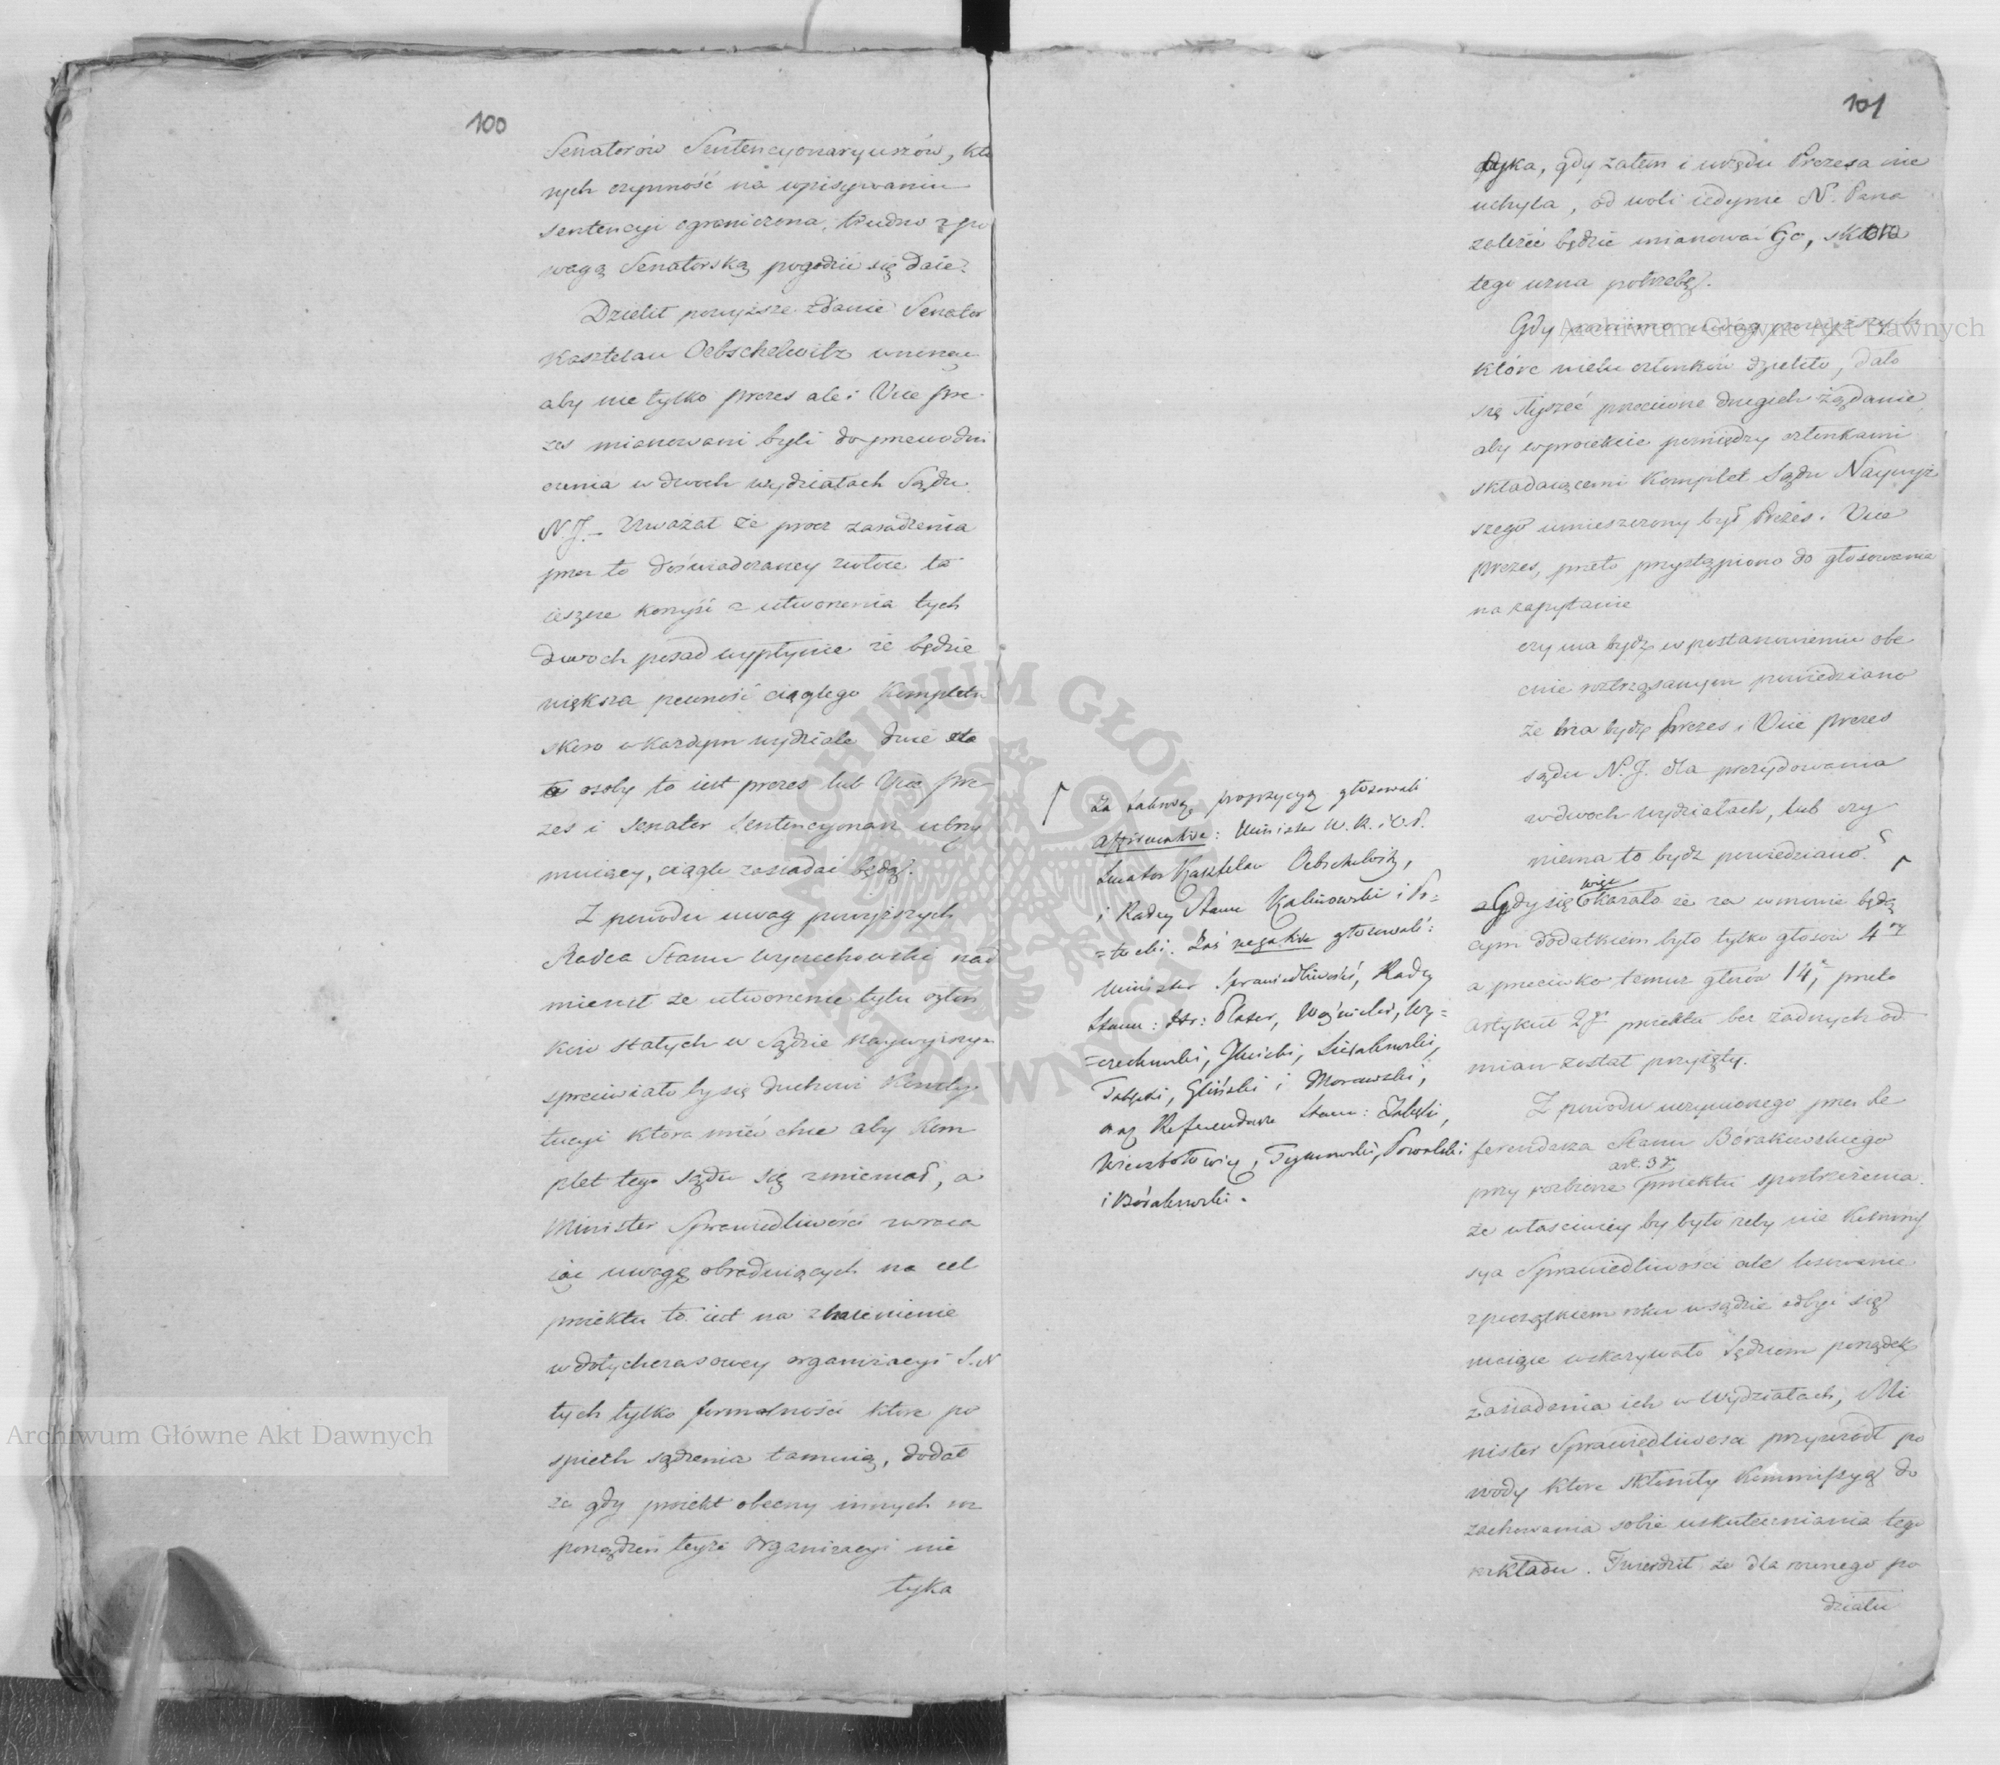 100
Senatorów Sentencyonaryuszów, któ
rych czynność na wpisywaniu
sentencyi ograniczona, trudno z po
wagą Senatorską pogodzić się daie.
Dzielił powyższe zdanie Senator
Kasztelan Oebschelwitz wnosząc
aby nie tylko prezes ale i Vice pre
zes mianowani byli do przewodni
czenia w dwoch wydziałach Sądu
N. J. – Uważał że procz zaradzenia
przez to doświadczaney zwłoce ta
ieszcze korzyść z utworzenia tych
dwoch posad wypłynie że będzie
większa pewność ciągłego Kompletu
skoro w każdym wydziale dwie sta
łe osoby to iest prezes lub Vice pre
zes i Senator Sentencyonarz utrzy
muiący, ciągle zasiadać będą.
Z powodu uwag powyższych
Radca Stanu Wyczechowski nad
mienił że utworzenie tylu człon
ków stałych w Sądzie naywyższym
sprzeciwiało by się duchowi Konsty
tucyi ktora mieć chce aby Kom
plet tego sądu się zmieniał, a
Minister Sprawiedliwości zwraca
iąc uwagę obraduiących na cel
proiektu to iest na zmienienie
w dotychczasowey organizacyi S. N
tych tylko formalności które po
spiech sądzenia tamuią, dodał
że gdy proiekt obecny innych roz
porządzeń teyże Organizacyi nie
tyka
101
tyka, gdy zatem i urzędu Prezesa nie
uchyla, od woli iedynie N. Pana
zależeć będzie mianować Go, skoro
tego uzna potrzebę.
Gdy pomimo uwag powyższych
które wielu członków dzieliło, dało
się słyszeć przeciwne drugich żądanie
aby w proiekcie pomiędzy członkami
składaiącemi Komplet Sądu Naywyż
szego umieszczony był Prezes i Vice
prezes, przeto przystąpiono do głosowania
na zapytanie
czy ma bydź w postanowieniu obe
cnie roztrząsanym powiedziano
że ma bydź prezes i Vice prezes
sądu N. J. dla prezydowania
w dwoch wydziałach, lub czy
niema to bydź powiedziano?
Gdy się więc okazało że za wmowie będą
cym dodatkiem było tylko głosów 4ry
a przeciwko temuż głosów 14, przeto
artykuł 2gi proiektu bez żadnych od
mian został przyięty.
Z powodu uczynionego przez Re
ferendarza Stanu Bórakowskiego
przy rozbiorze art. 3go proiektu spostrzeżenia
że właściwiey by było żeby nie Kommis
sya Sprawiedliwości ale losowanie
z początkiem roku w sądzie odbyć się
maiące wskazywało Sędziom porządek
zasiadania ich w Wydziałach, Mi
nister Sprawiedliwości przywiodł po
wody które skłoniły Kommissyą do
zachowania sobie uskuteczniania tego
rozkładu. Twierdził że dla równego po
działu
Za takową propozycyą głosowali
affirmative: Minister W. R. i O. P.
Senator Kasztelan Oebschelwitz,
i Radcy Stanu Kalinowski i Po=
=tocki. Zaś negative głosowali:
Minister Sprawiedliwości, Radcy
Stanu: Hr: Plater, Woźnicki, Wy=
=czechowski,
Gliński i Morawski,
oraz Referendarze Stanu: Zaleski,
Wierzbołowicz, Tymowski,
i Bórakowski.
Archiwum Główne Akt Dawnych
Archiwum Główne Akt Dawnych
ARCHIWUM GŁÓWNE AKT DAWNYCH